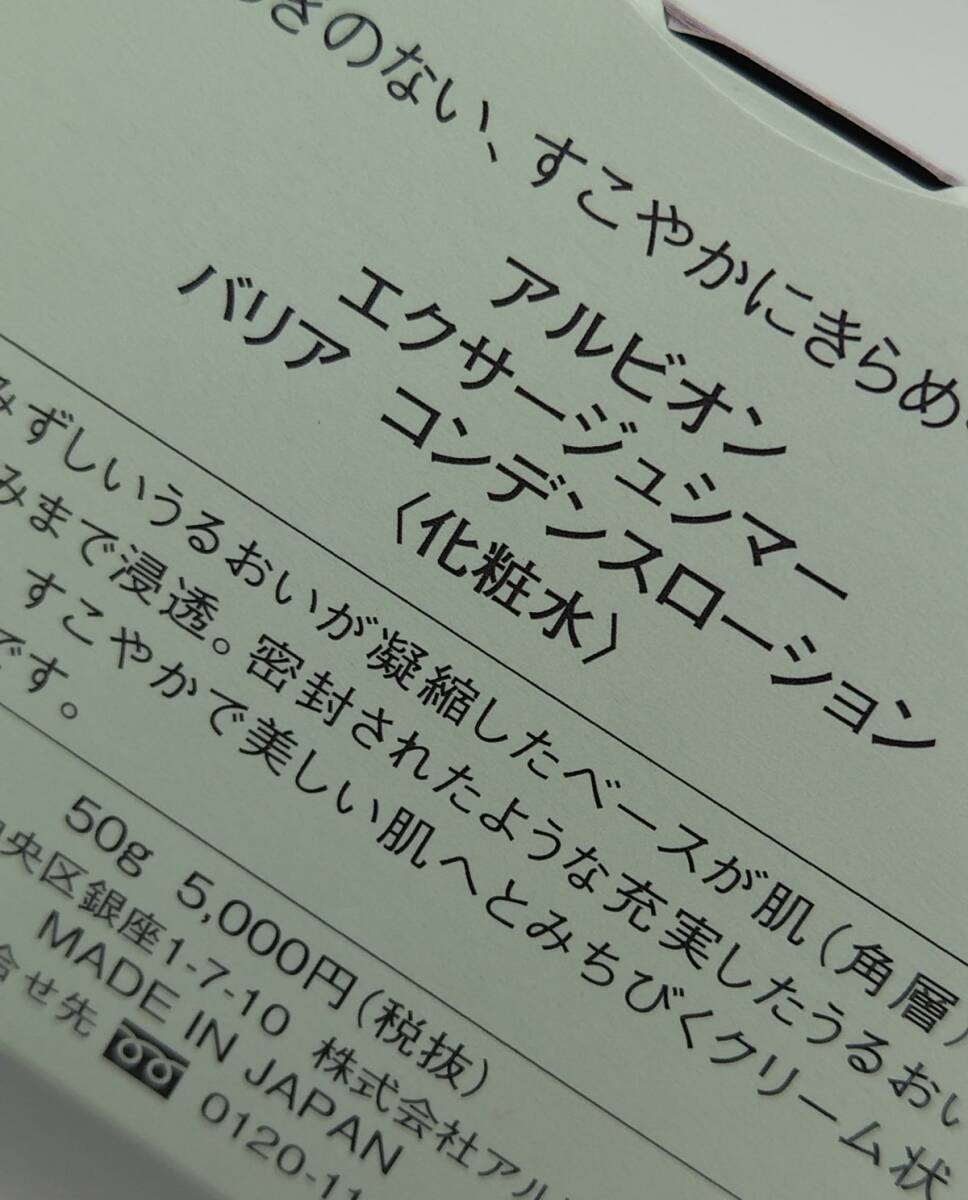 きのない、すこやかにきらめ
アルビオン
エクサージュシマー
バリア コンデンスローション
〈化粧水〉
みずしいうるおいが凝縮したベースが肌(角層)
みまで浸透。密封されたような充実したうるおい
すこやかで美しい肌へとみちびくクリーム状
です。
50g 5,000円(税抜)
央区銀座1-7-10 株式会社アル
MADE IN JAPAN
合せ先 0120-11